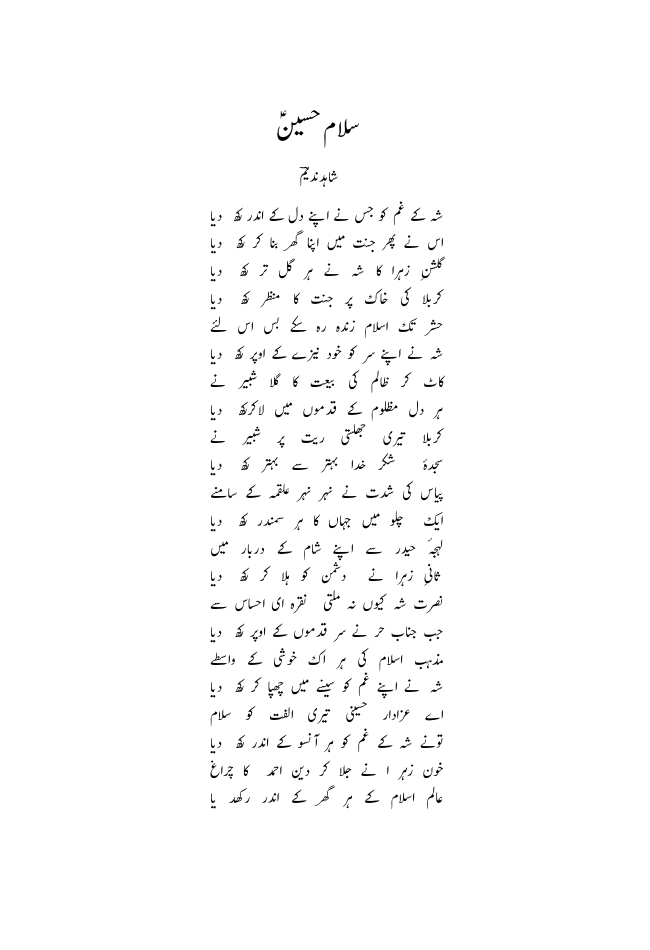 سلام حسینؑ
شاہد ندیمؔ
شہ کے غم کو جس نے اپنے دل کے اندر رکھ دیا
اس نے پھر جنت میں اپنا گھر بنا کر رکھ دیا
گلشنِ زہرا کا شہ نے ہر گل تر رکھ دیا
کربلا کی خاک پر جنت کا منظر رکھ دیا
حشر تک اسلام زندہ رہ سکے بس اس لئے
شہ نے اپنے سر کو خود نیزے کے اوپر رکھ دیا
کاٹ کر ظالم کی بیعت کا گلا شبیر نے
ہر دل مظلوم کے قدموں میں لاکر رکھ دیا
کربلا تیری جھلتی ریت پر شبیر نے
سجدۂ شکر خدا بہتر سے بہتر رکھ دیا
پیاس کی شدت نے نہر نہر علقمہ کے سامنے
ایک چلو میں جہاں کا ہر سمندر رکھ دیا
لہجۂ حیدر سے اپنے شام کے دربار میں
ثانیِ زہرا نے دشمن کو ہلا کر رکھ دیا
نصرت شہ کیوں نہ ملتی نقرہ ای احساس سے
جب جناب حر نے سر قدموں کے اوپر رکھ دیا
مذہب اسلام کی ہر اک خوشی کے واسطے
شہ نے اپنے غم کو سینے میں چھپا کر رکھ دیا
اے عزادار حسینی تیری الفت کو سلام
تونے شہ کے غم کو ہر آنسو کے اندر رکھ دیا
خون زہر ا نے جلا کر دین احمد کا چراغ
عالم اسلام کے ہر گھر کے اندر رکھد یا